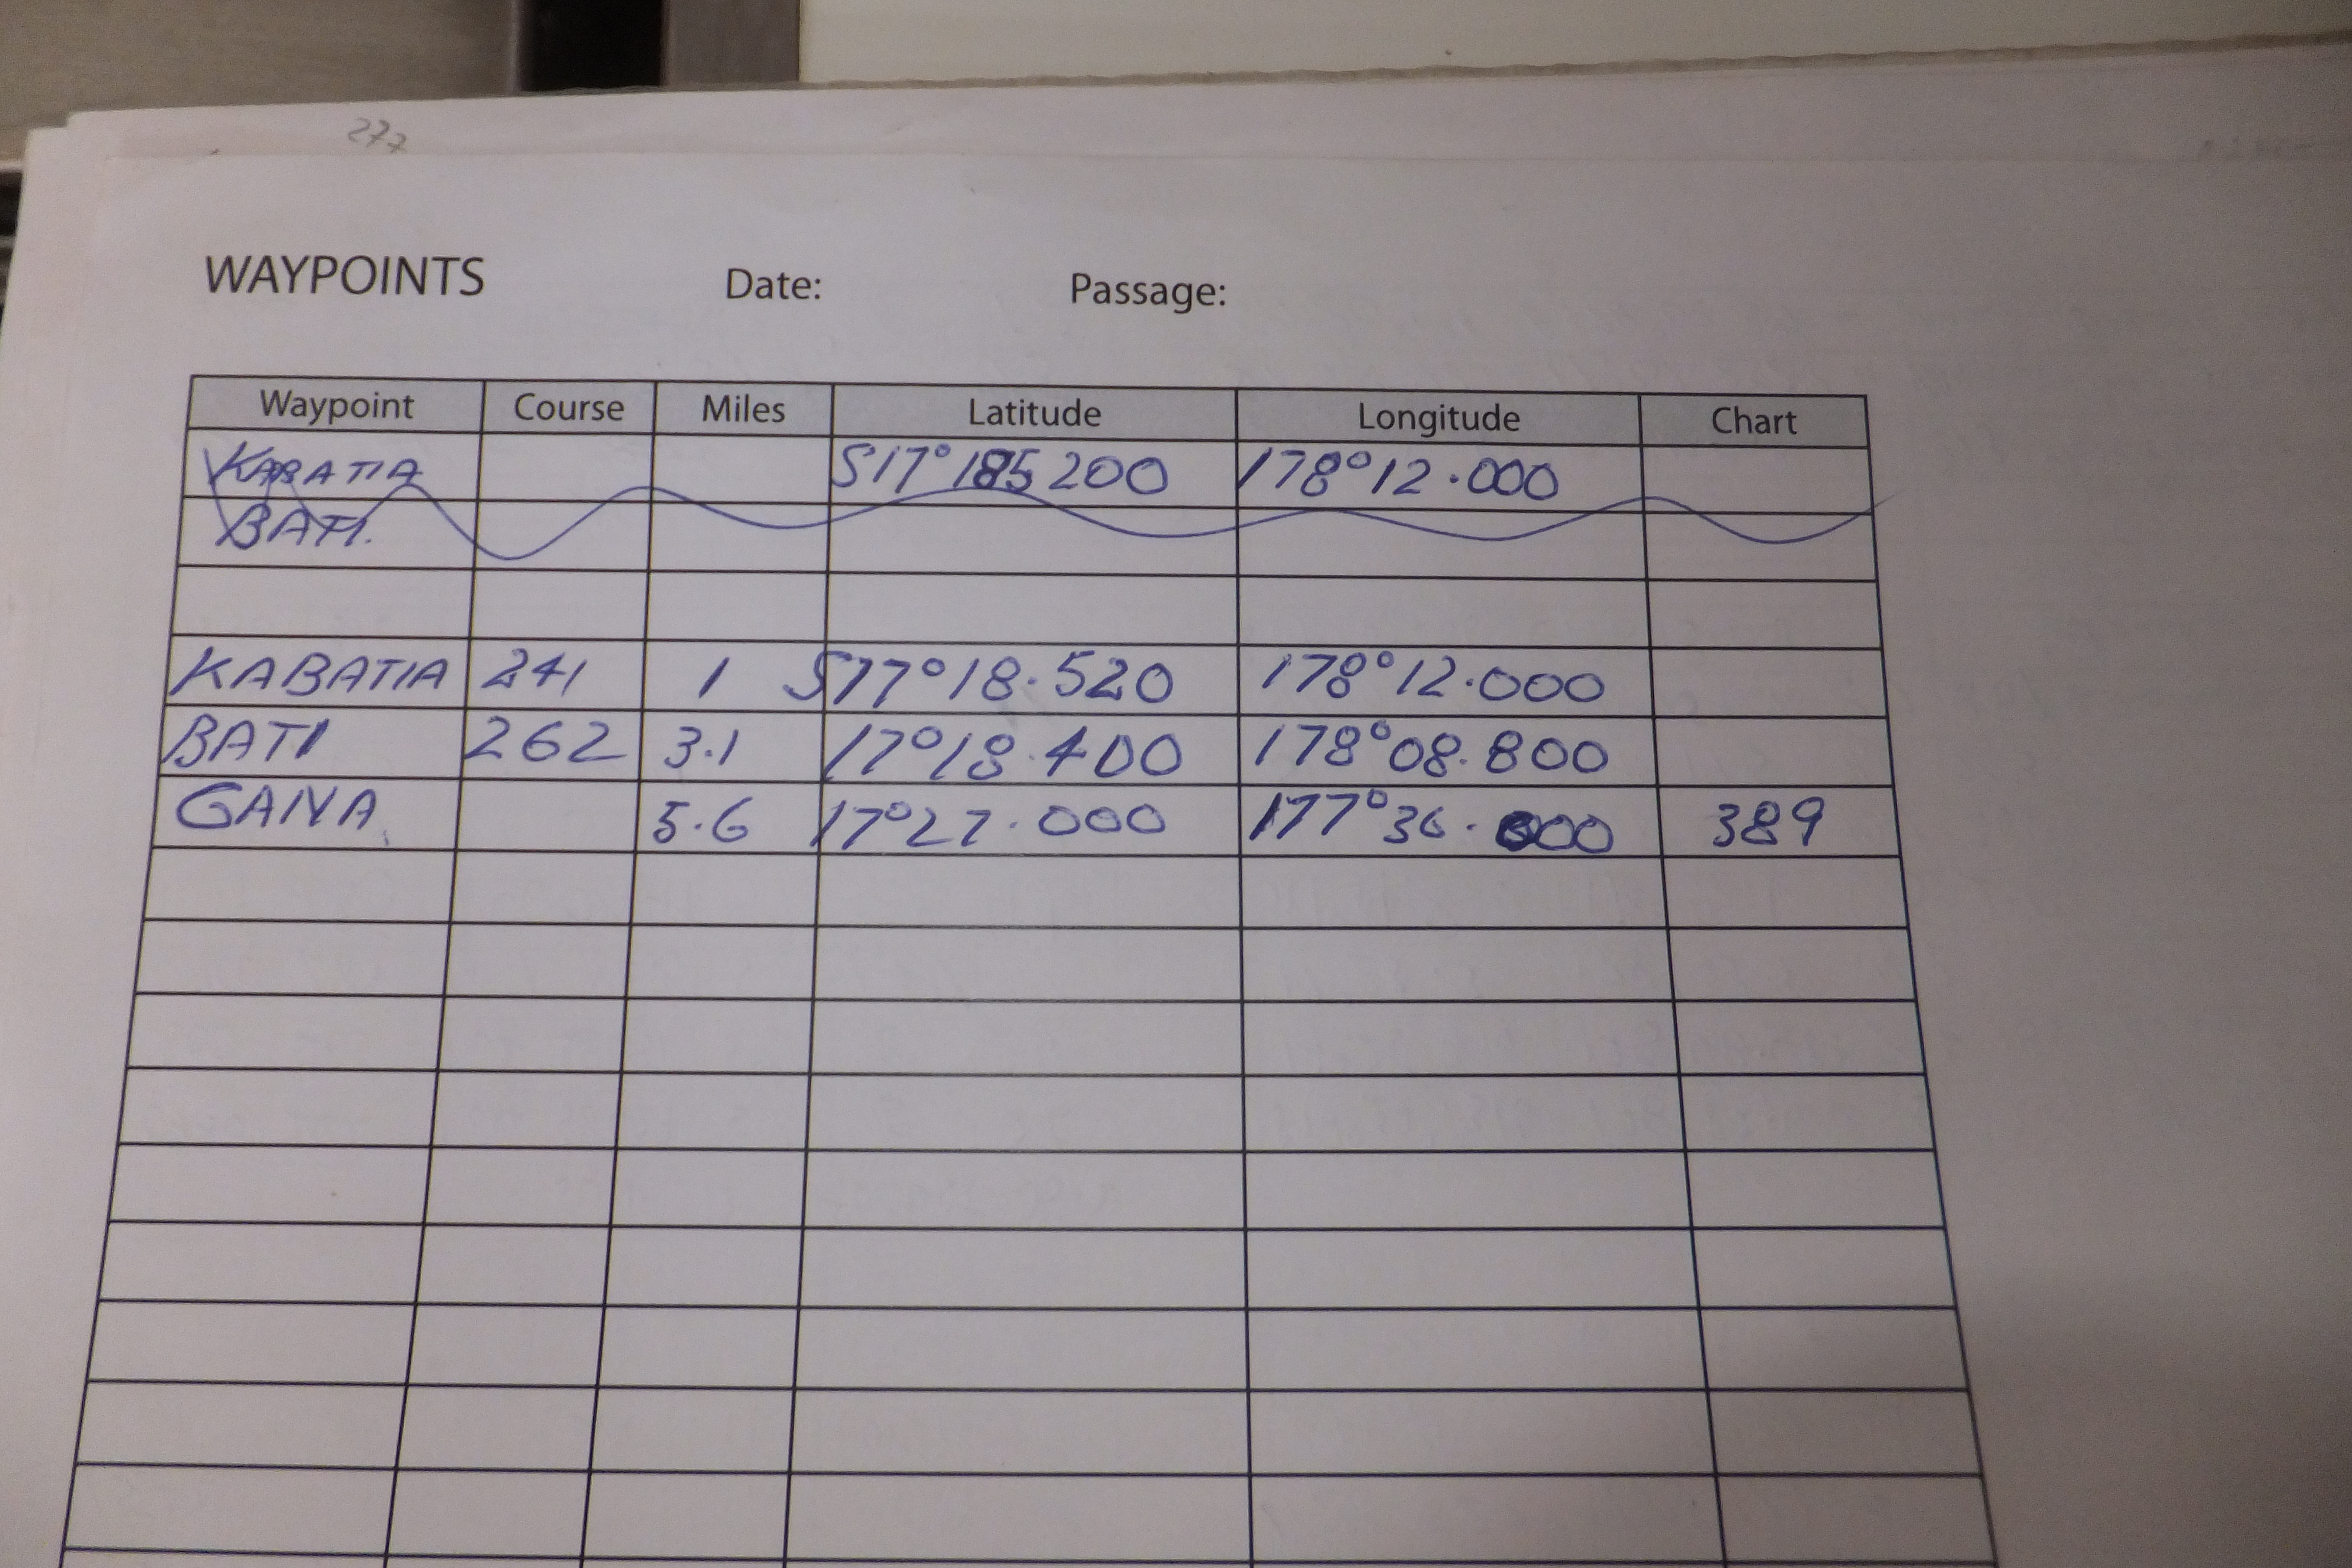 277
WAYPOINTS Date: Passage:
Waypoint Course Miles Latitude Longitude Chart
KABATIA S17° 185 200 178° 12.000
BATI.
KABATIA 241 1 S17° 18.520 178° 12.000
BATI 262 3.1 17° 18.400 178° 08.800
GANA 5.6 17° 27.000 177° 36.000 389